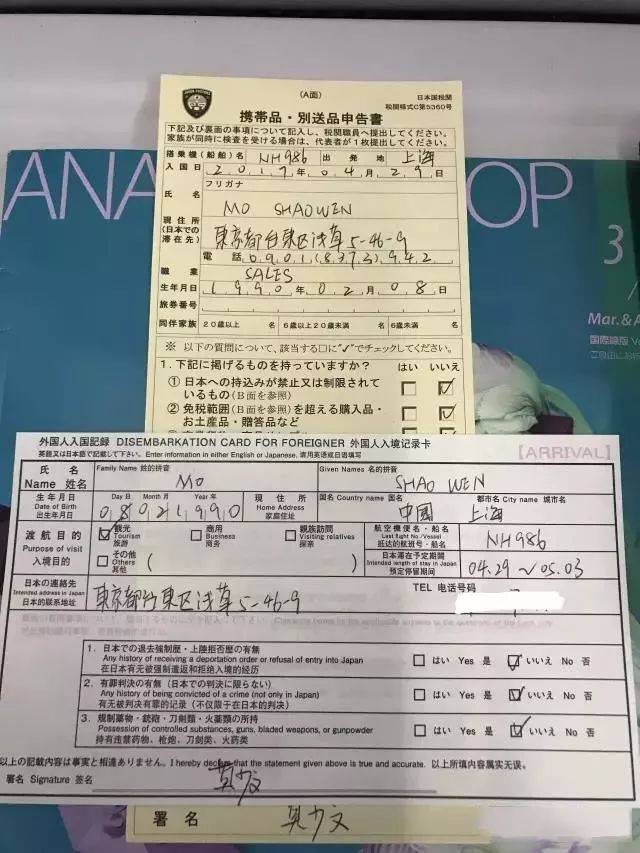 ANA
OP
3
Mar.&A
国際線版
(A面)
日本国税関
税関様式C第5360号
携帯品・別送品申告書
下記及び裏面の事項について記入し、税関職員へ提出してください。
家族が同時に検査を受ける場合は、代表者が1枚提出してください。
搭乗機(船舶)名 NH986 出発地 上海
入国日 2017年04月29日
フリガナ
氏名 MO SHAOWEN
現住所
(日本での
滞在先) 東京都台東区浅草5-46-9
電話 0901(8373)942
職業 SALES
生年月日 1990年02月08日
旅券番号
同伴家族 20歳以上 名 6歳以上20歳未満 名 6歳未満 名
※ 以下の質問について、該当する□に"✓"でチェックしてください。
1.下記に掲げるものを持っていますか? はい いいえ
① 日本への持込みが禁止又は制限されて
いるもの(B面を参照)
② 免税範囲(B面を参照)を超える購入品・
お土産品・贈答品など
外国人入国記録 DISEMBARKATION CARD FOR FOREIGNER 外国人入境记录卡
英語又は日本語で記載して下さい。 Enter information in either English or Japanese. 请用英语或日语填写。
[ARRIVAL]
氏名
Name 姓名
Family Name 姓的拼音
MO
Given Names 名的拼音
SHAO WEN
生年月日
Date of Birth
出生年月日
Day 日 Month 月 Year 年
08021990
現住所
Home Address
家庭住址
国名 Country name 国名
中國
都市名 City name 城市名
上海
渡航目的
Purpose of visit
入境目的
☑ 観光
Tourism
旅游
□ 商用
Business
商务
□ 親族訪問
Visiting relatives
探亲
□ その他
Others
其他
( )
航空機便名・船名
Last flight No./Vessel
抵达的航班号・船名
NH986
日本滞在予定期間
Intended length of stay in Japan
预定停留期间
04.29～05.03
日本の連絡先
Intended address in Japan
日本的联系地址
東京都台東区浅草5-46-9
TEL 电话号码
1. 日本での退去強制歴・上陸拒否歴の有無
Any history of receiving a deportation order or refusal of entry into Japan
在日本有无被强制遣返和拒绝入境的经历
□ はい Yes 是 ☑ いいえ No 否
2. 有罪判決の有無(日本での判決に限らない)
Any history of being convicted of a crime (not only in Japan)
有无被判决有罪的记录(不仅限于在日本的判决)
□ はい Yes 是 ☑ いいえ No 否
3. 規制薬物・銃砲・刀剣類・火薬類の所持
Possession of controlled substances, guns, bladed weapons, or gunpowder
持有违禁药物、枪炮、刀剑类、火药类
□ はい Yes 是 ☑ いいえ No 否
以上の記載内容は事実と相違ありません。I hereby declare that the statement given above is true and accurate. 以上所填内容属实无误。
署名 Signature 签名 莫少文
署名 莫少文